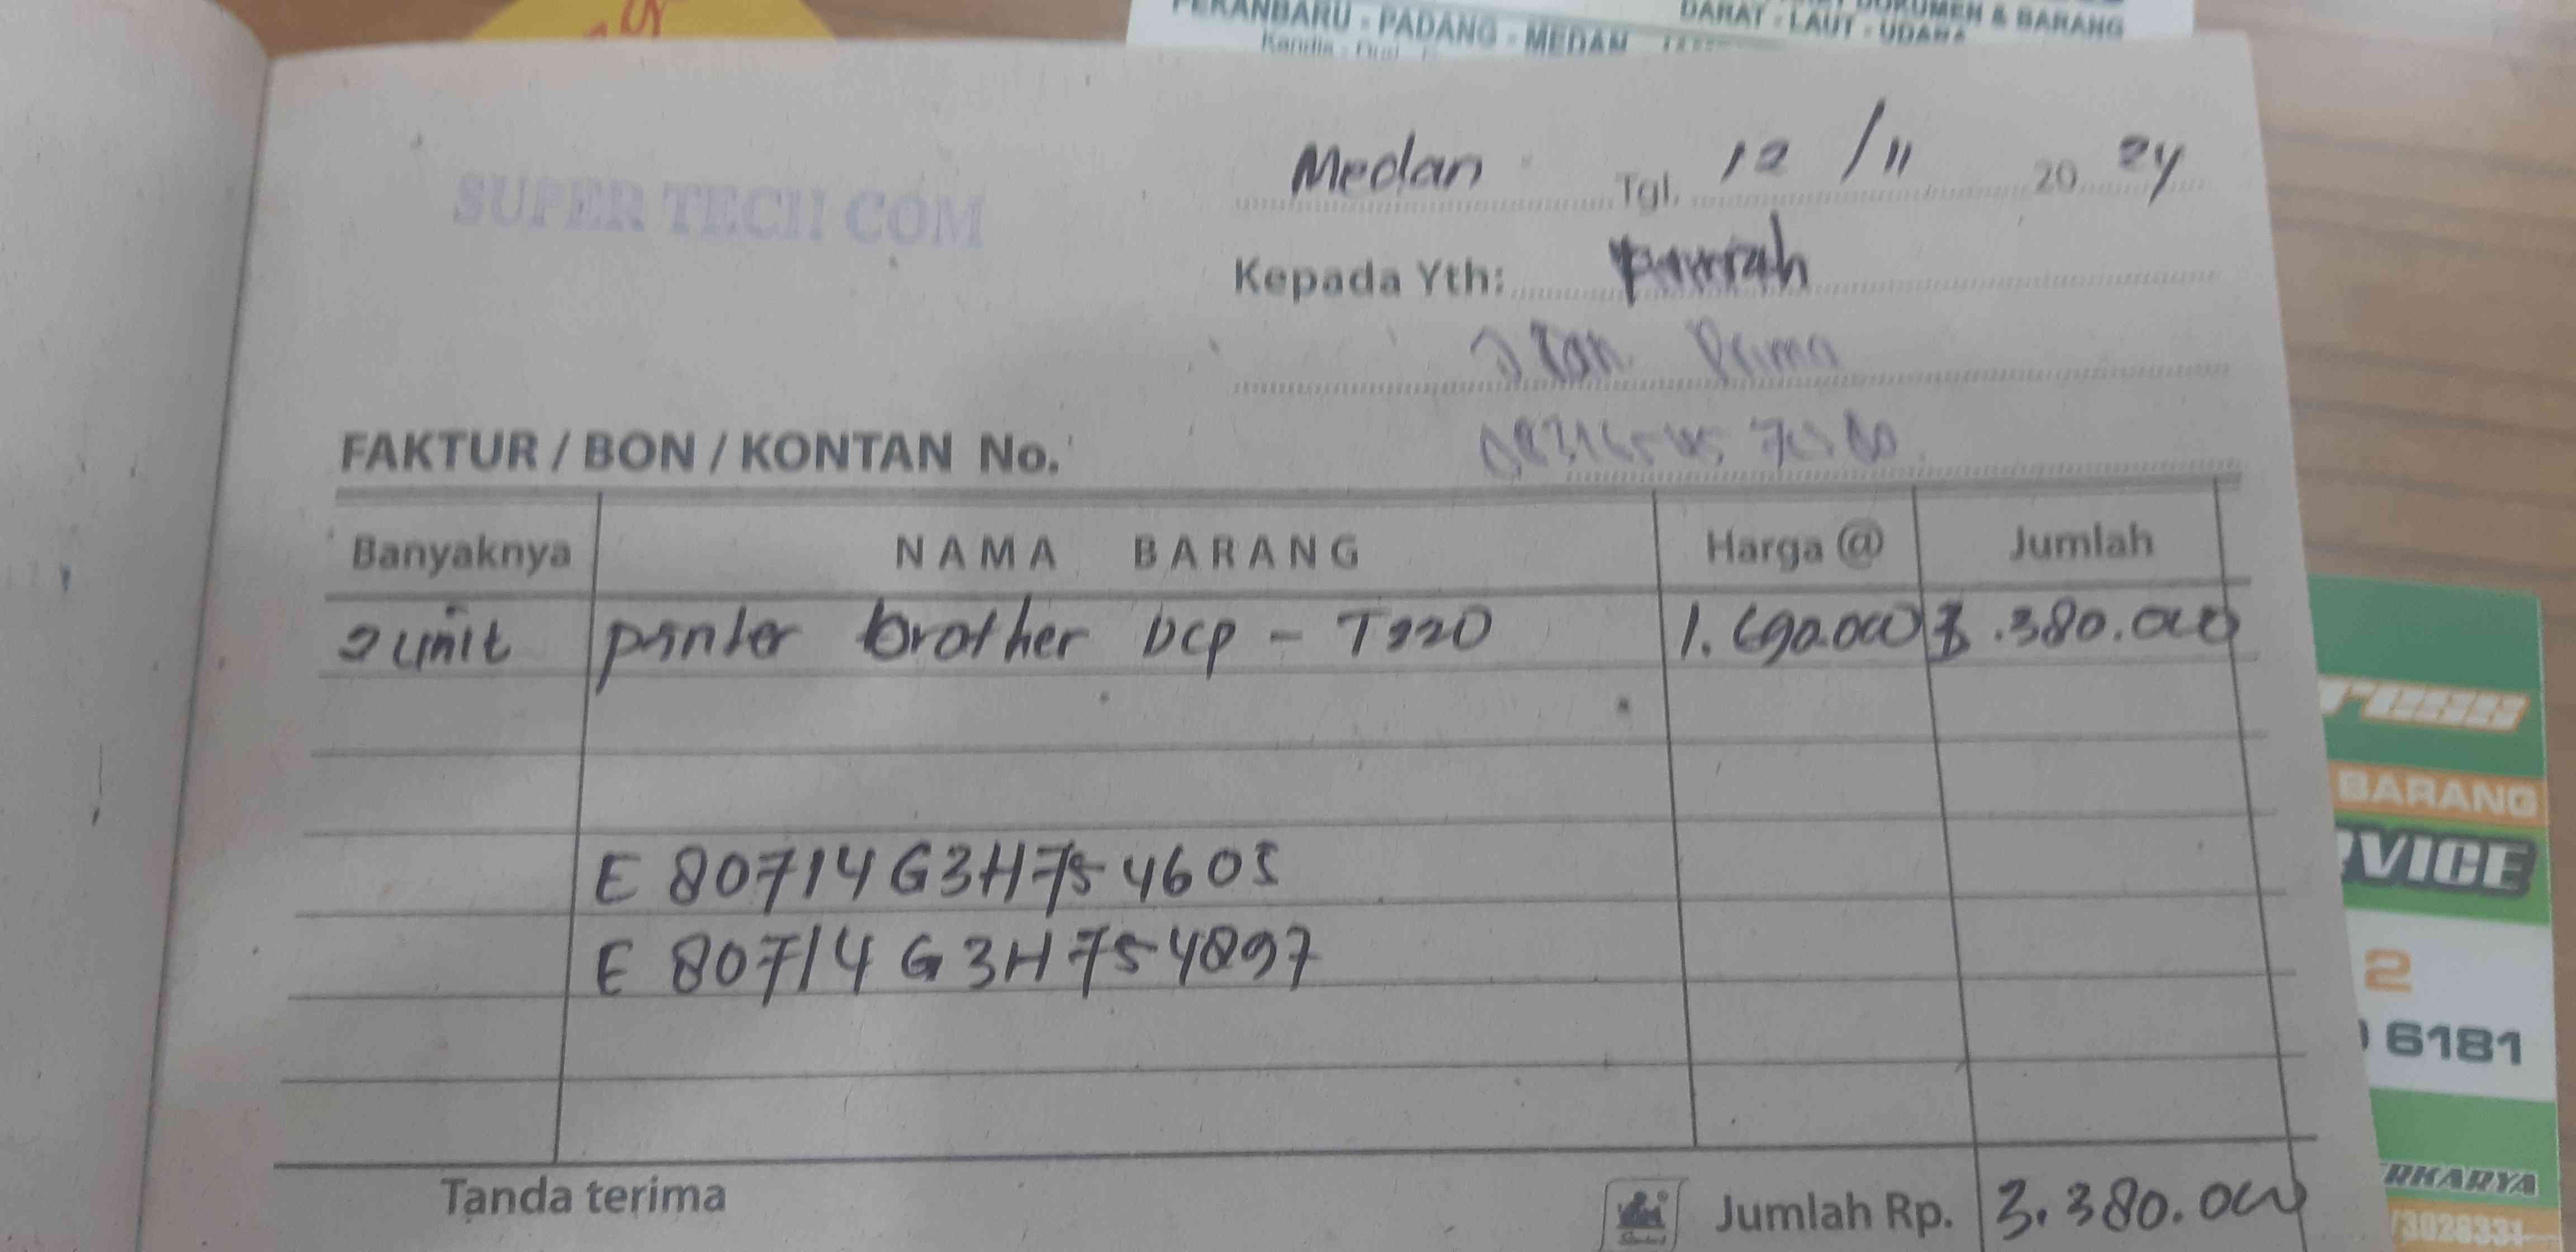 PEKANBARU - PADANG - MEDAN
DARAT - LAUT - UDARA
DOKUMEN & BARANG
SUPER TECH COM
Medan Tgl. 12 / 11 20 24
Kepada Yth:
Prima
FAKTUR / BON / KONTAN No.
Banyaknya NAMA BARANG Harga @ Jumlah
2 unit printer brother DCP - T220 1.690.000 3.380.000
E 80714G3H754605
E 80714G3H754897
Tanda terima Jumlah Rp. 3.380.000
BARANG
RVICE
2
6181
RKARYA
/3028331